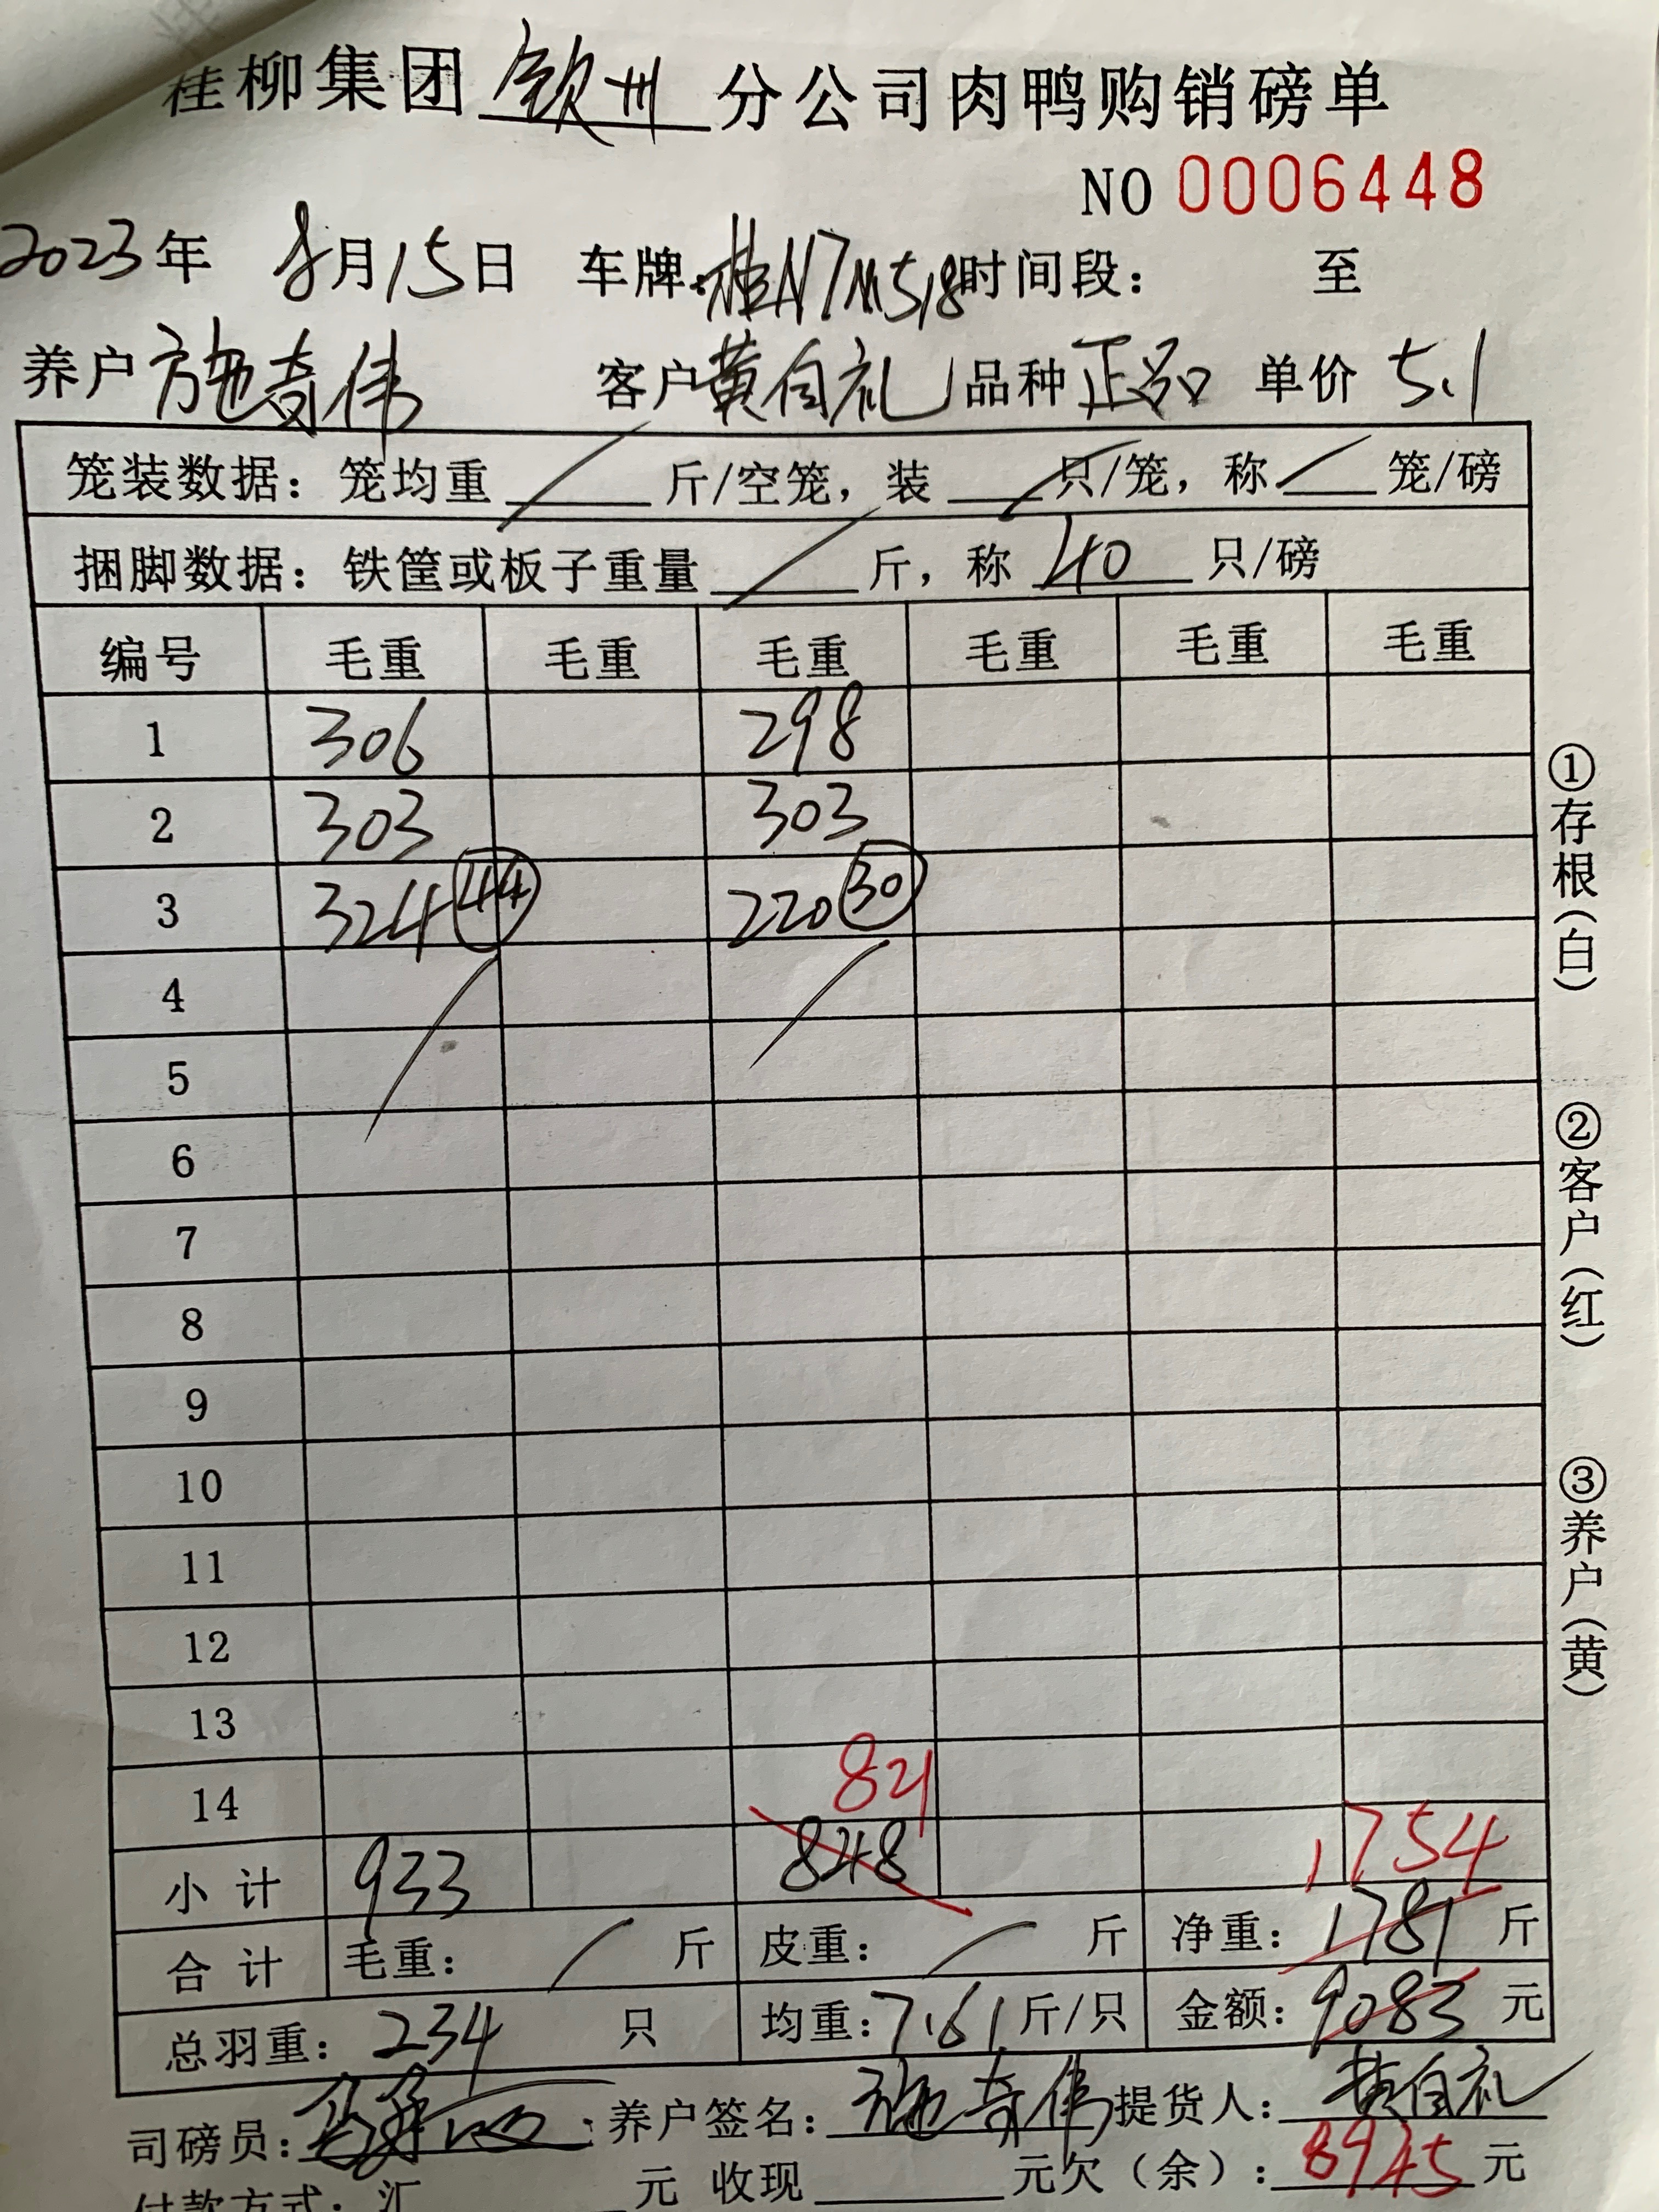 桂柳集团钦州分公司肉鸭购销磅单
NO 0006448
2023年 8月15日 车牌:桂N7M518时间段: 至
养户 施奇伟 客户黄自礼 品种 正品 单价 5.1
笼装数据: 笼均重 / 斤/空笼, 装 / 只/笼, 称 / 笼/磅
捆脚数据: 铁筐或板子重量 / 斤, 称 40 只/磅
编号 毛重 毛重 毛重 毛重 毛重 毛重
1 306 298
2 303 303
3 324 44 220 30
4 / /
5
6
7
8
9
10
11
12
13
14 821
小计 933 848 1754
合计 毛重: / 斤 皮重: / 斤 净重: 1781 斤
总羽重: 234 只 均重: 7.61 斤/只 金额: 9083 元
司磅员: 养户签名: 施奇伟 提货人: 黄自礼
付款方式: 汇 元 收现 元欠(余): 8945 元
①存根(白)
②客户(红)
③养户(黄)